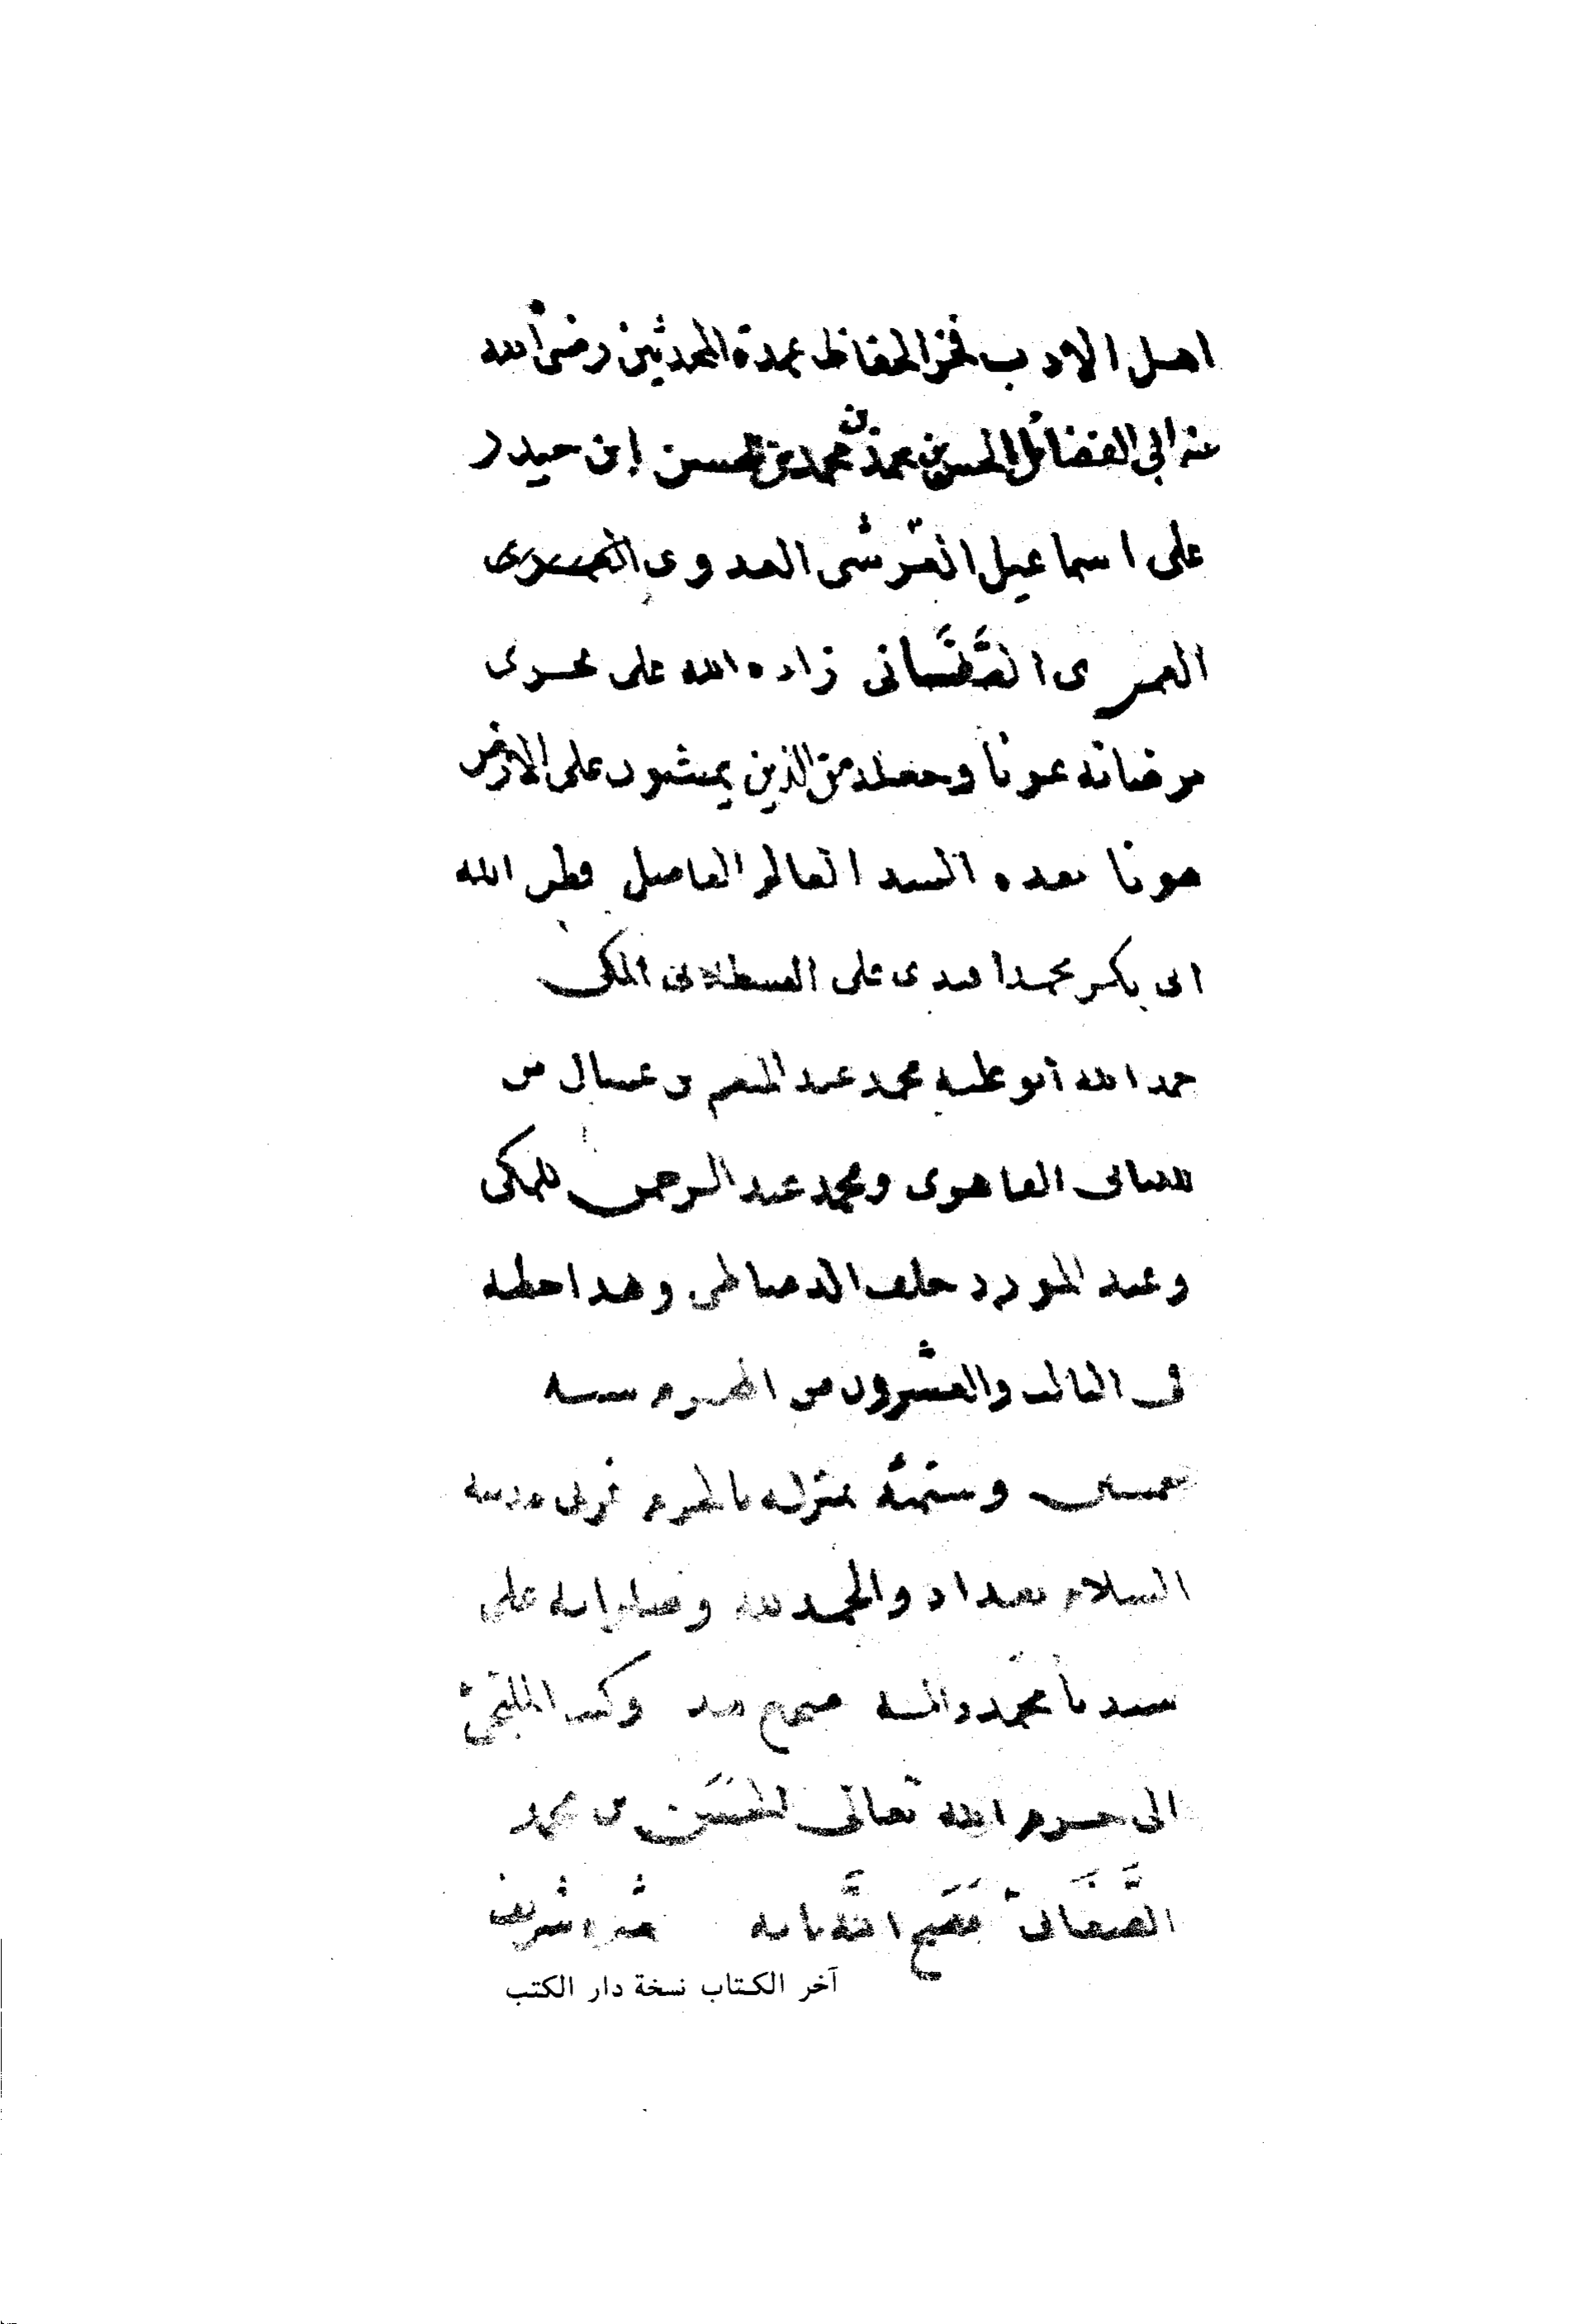 اهل الادب فخر الحفاظ عمدة المحدثين رضى الله
عنه ابى الفضائل الحسن بن محمد بن محمد بن الحسن إبن حيدر
على اسماعيل القرشى العدوى العمرى
العمرى الصَّغَانى زاده الله على تحرى
مرضاته عونا وجعله من الذين يمشون على الارض
هونا بعده السيد العالم الفاضل قطر الله
ابى بكر محمد على القسطلانى المكى
حمد الله ابو محمد عبد المنعم بن من
القاهرى ومحمد عبد الرحمن المكى
وعبد خلف الدمياطى وهذا خطه
فى الثالث والعشرون من المحرم سنة
خمسين وستمئة بمنزله بالحرم غربى مدينة
السلام بغداد والحمد لله وصلواته على
سيدنا محمد وآله صحيح وكتب الملتجئ
الى حرم الله تعالى الحَسَن بن محمد
الصَّغَانى
آخر الكتاب نسخة دار الكتب